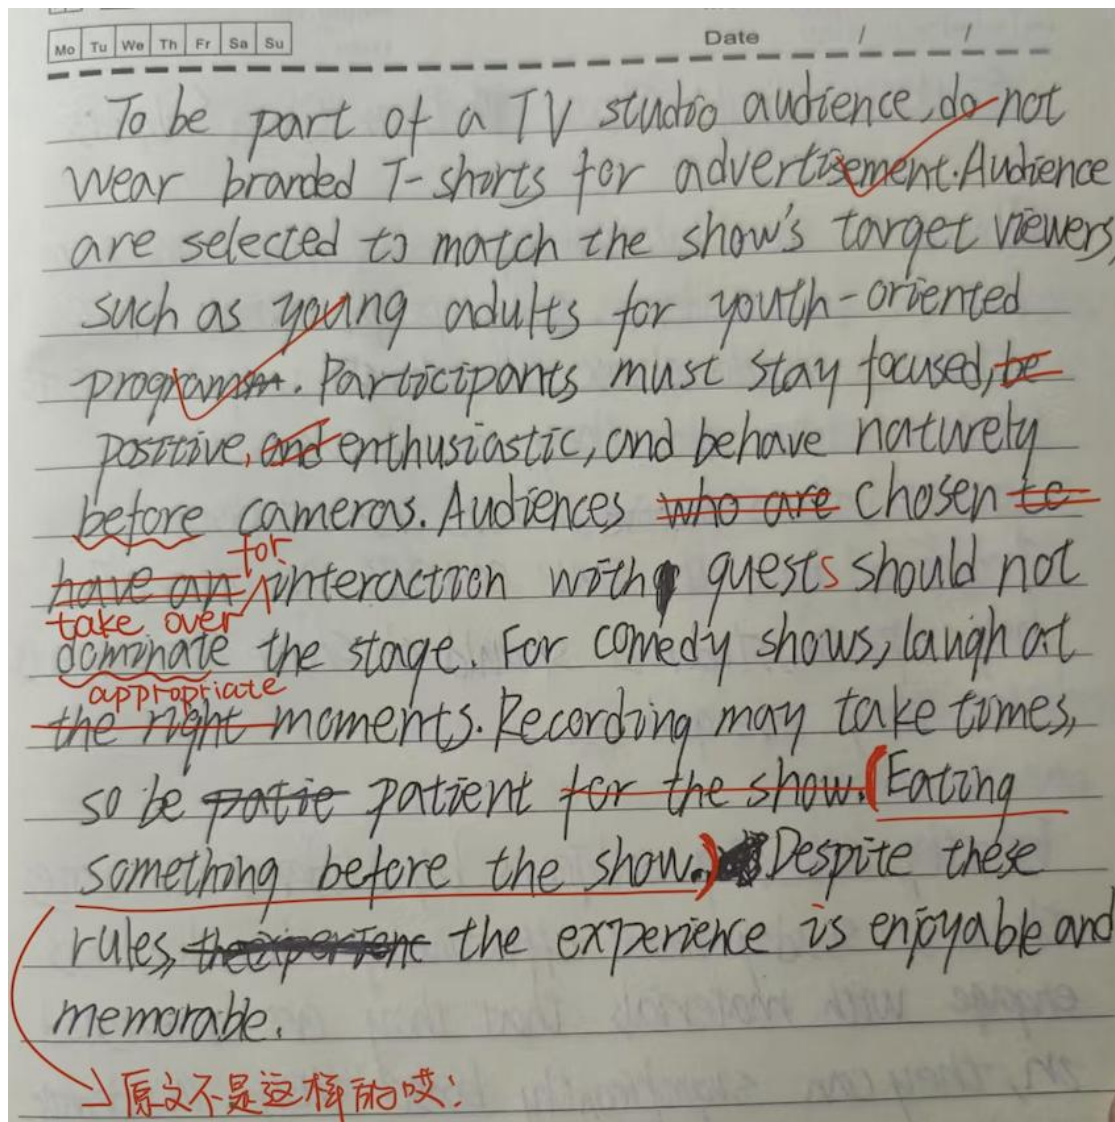 Mo Tu We Th Fr Sa Su
Date / /
To be part of a TV studio audience, do not
wear branded T-shirts for advertisement. Audience
are selected to match the show's target viewers,
such as young adults for youth-oriented
programs. Participants must stay focused, be
positive, and enthusiastic, and behave naturely
before cameras. Audiences who are chosen to
for
have an interaction with guests should not
take over
dominate the stage. For comedy shows, laugh at
appropriate
the right moments. Recording may take times,
so be patie patient for the show. (Eating
something before the show.) Despite these
rules, the experience is enjoyable and
memorable.
原文不是这样的哎!